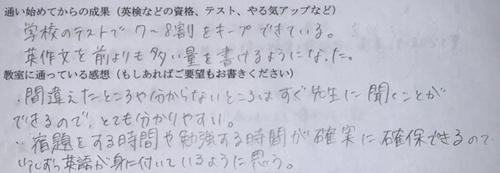 通い始めてからの成果（英検などの資格、テスト、やる気アップなど）
学校のテストで7～8割をキープできている。
英作文を前よりも多い量を書けるようになった。
教室に通っている感想（もしあればご要望もお書きください）
・間違えたところや分からないところはすぐ先生に聞くことが
できるので、とても分かりやすい。
・宿題をする時間や勉強する時間が確実に確保できるので
英語が身に付いているように思う。